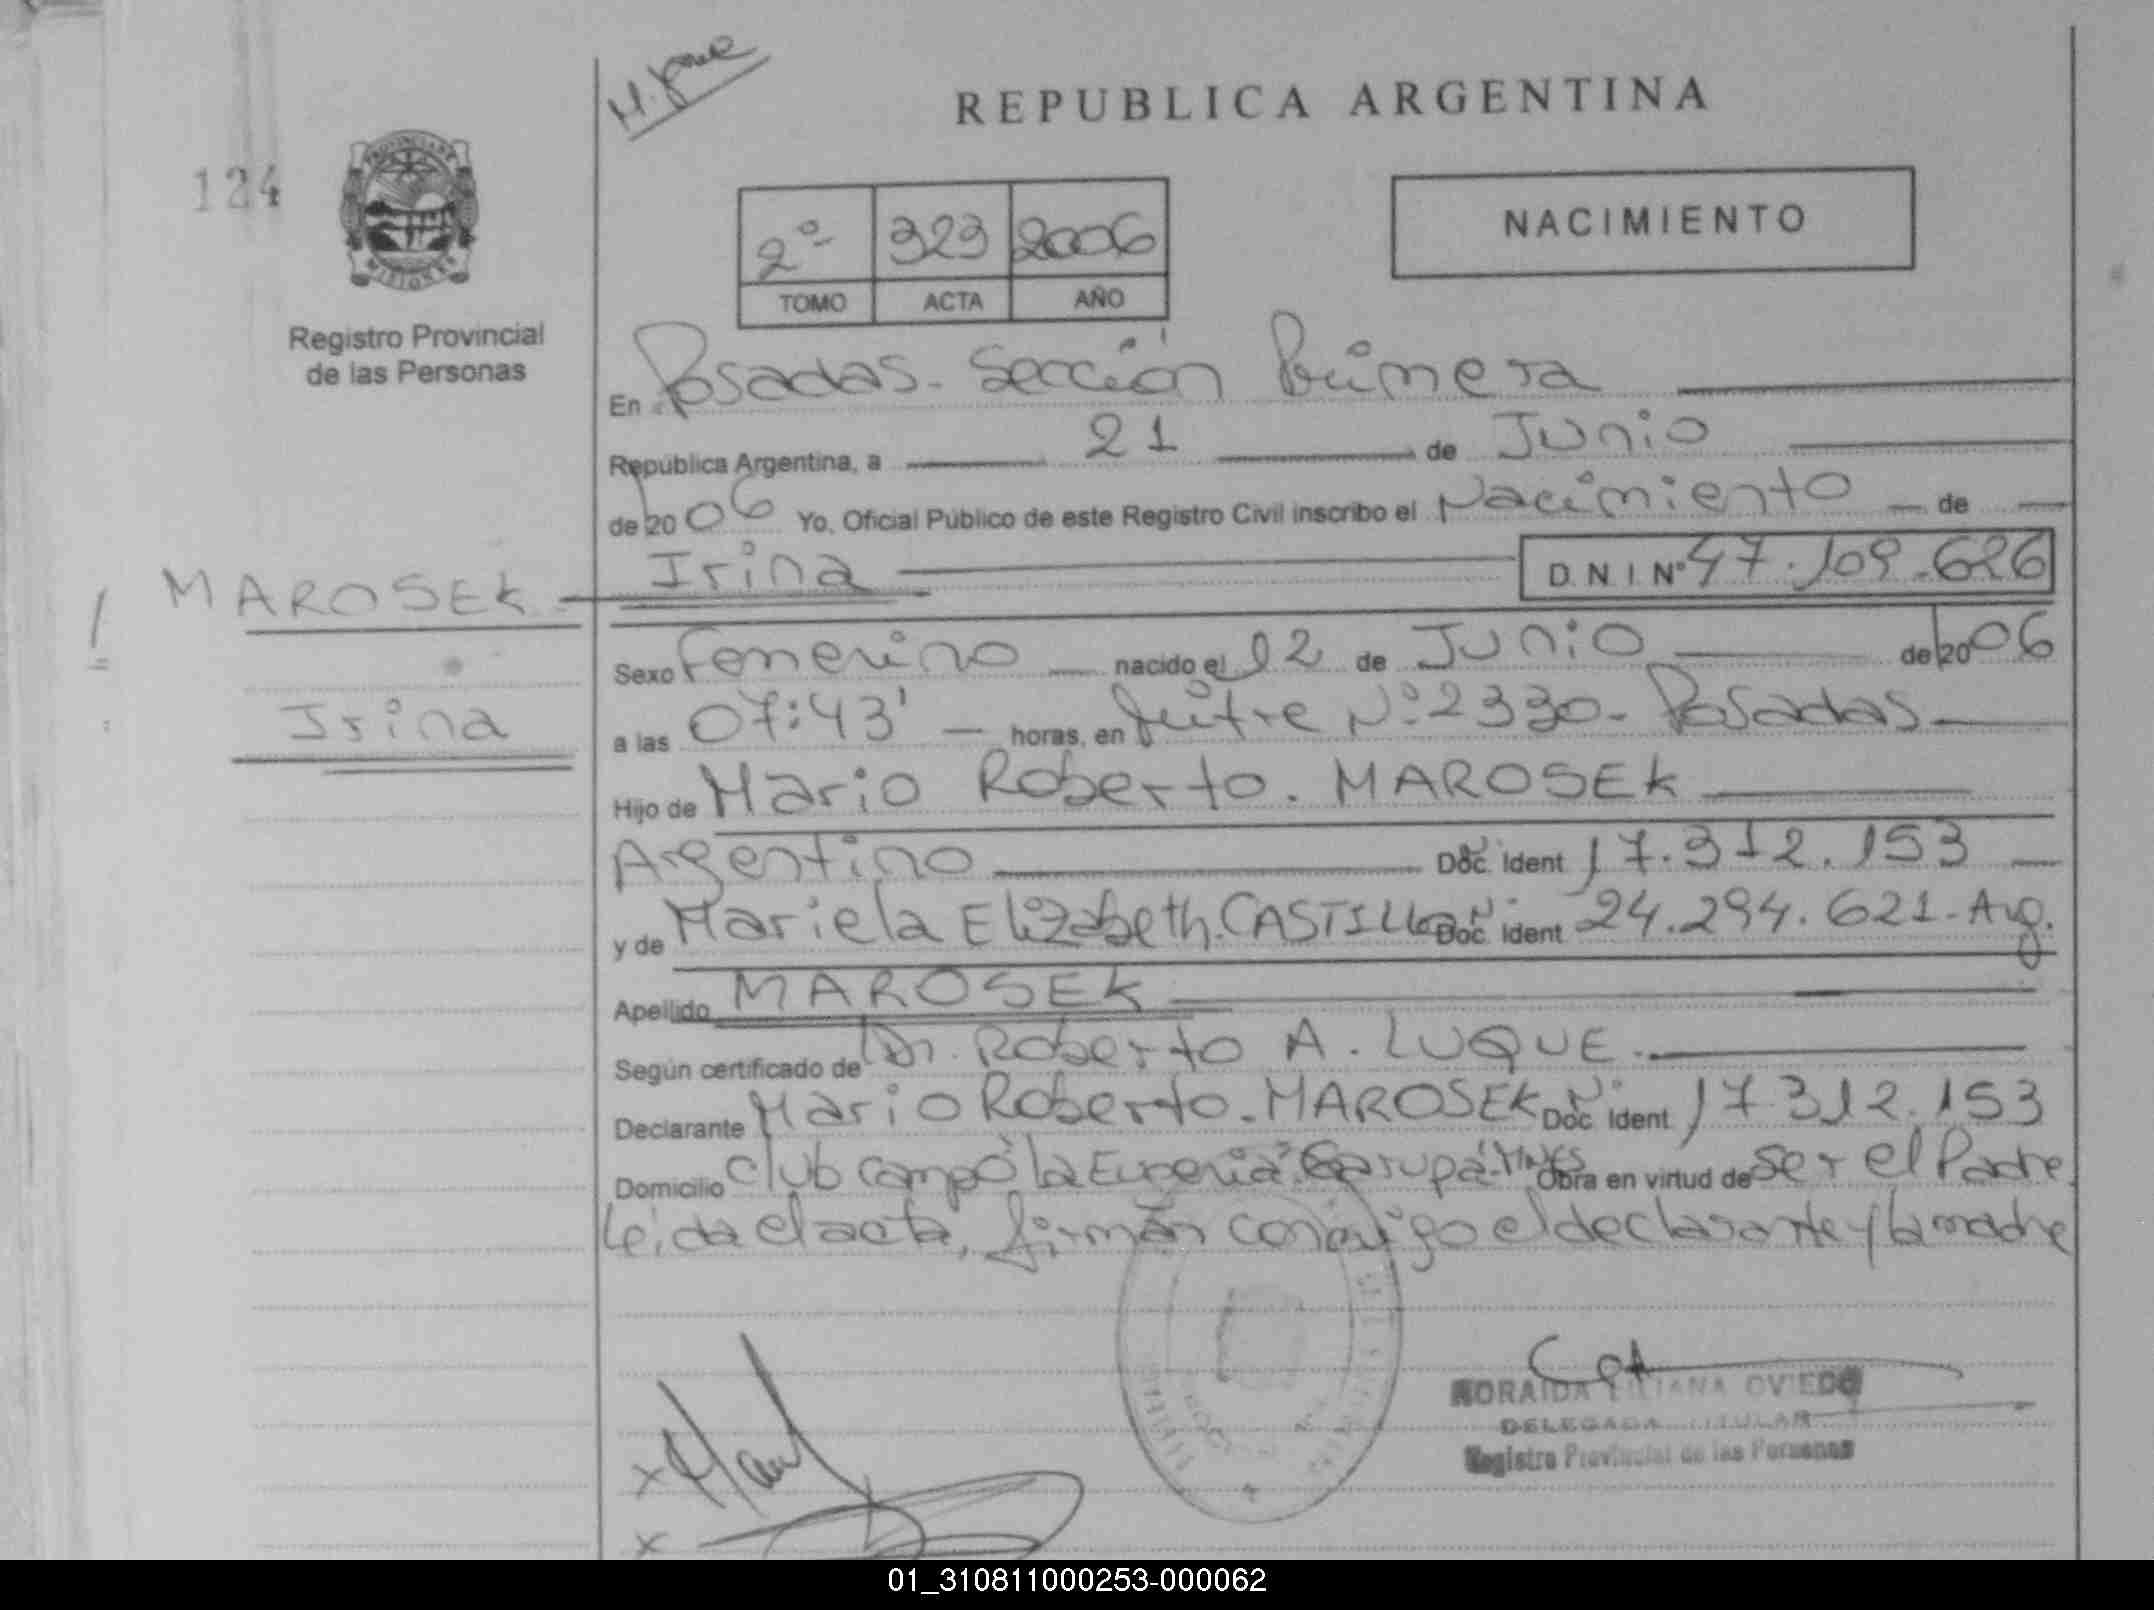 REPUBLICA ARGENTINA
124
PROVINCIA DE
MISIONES
Registro Provincial
de las Personas
2º 323 2006
TOMO ACTA AÑO
NACIMIENTO
En Posadas - Sección Primera
República Argentina, a 21 de Junio
de 2006 Yo, Oficial Público de este Registro Civil inscribo el Nacimiento de
Irina D.N.I Nº 47.109.626
MAROSEK
Irina
Sexo Femenino nacido el 12 de Junio de 2006
a las 07:43' horas, en Mitre Nº: 2330 - Posadas
Hijo de Mario Roberto. MAROSEK
Argentino Doc. Ident 17.312.153
y de Mariela Elizabeth. CASTILLO Doc. Ident 24.294.621 - Arg.
Apellido MAROSEK
Según certificado de Dr. Roberto A. LUQUE.
Declarante Mario Roberto. MAROSEK Doc. Ident 17.312.153
Domicilio Club Campo "la Eugenia" Garupá - Mnes Obra en virtud de ser el Padre
Leída el acta, firman conmigo el declarante y la madre
LILIANA OVIEDO
DELEGADA TITULAR
Registro Provincial de las Personas
01_310811000253-000062